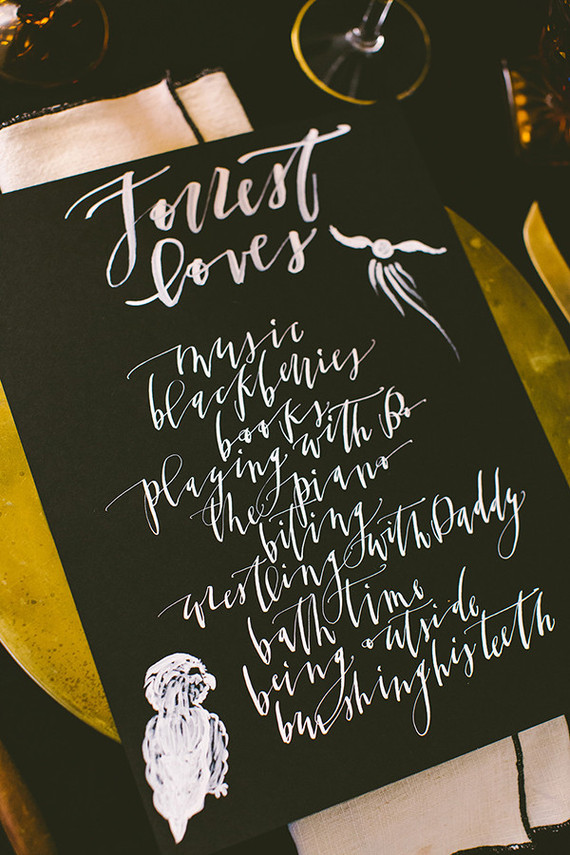 Forrest
loves
music
blackberries
books
playing with Bo
the piano
biting
wrestling with Daddy
bath time
being outside
brushing his teeth